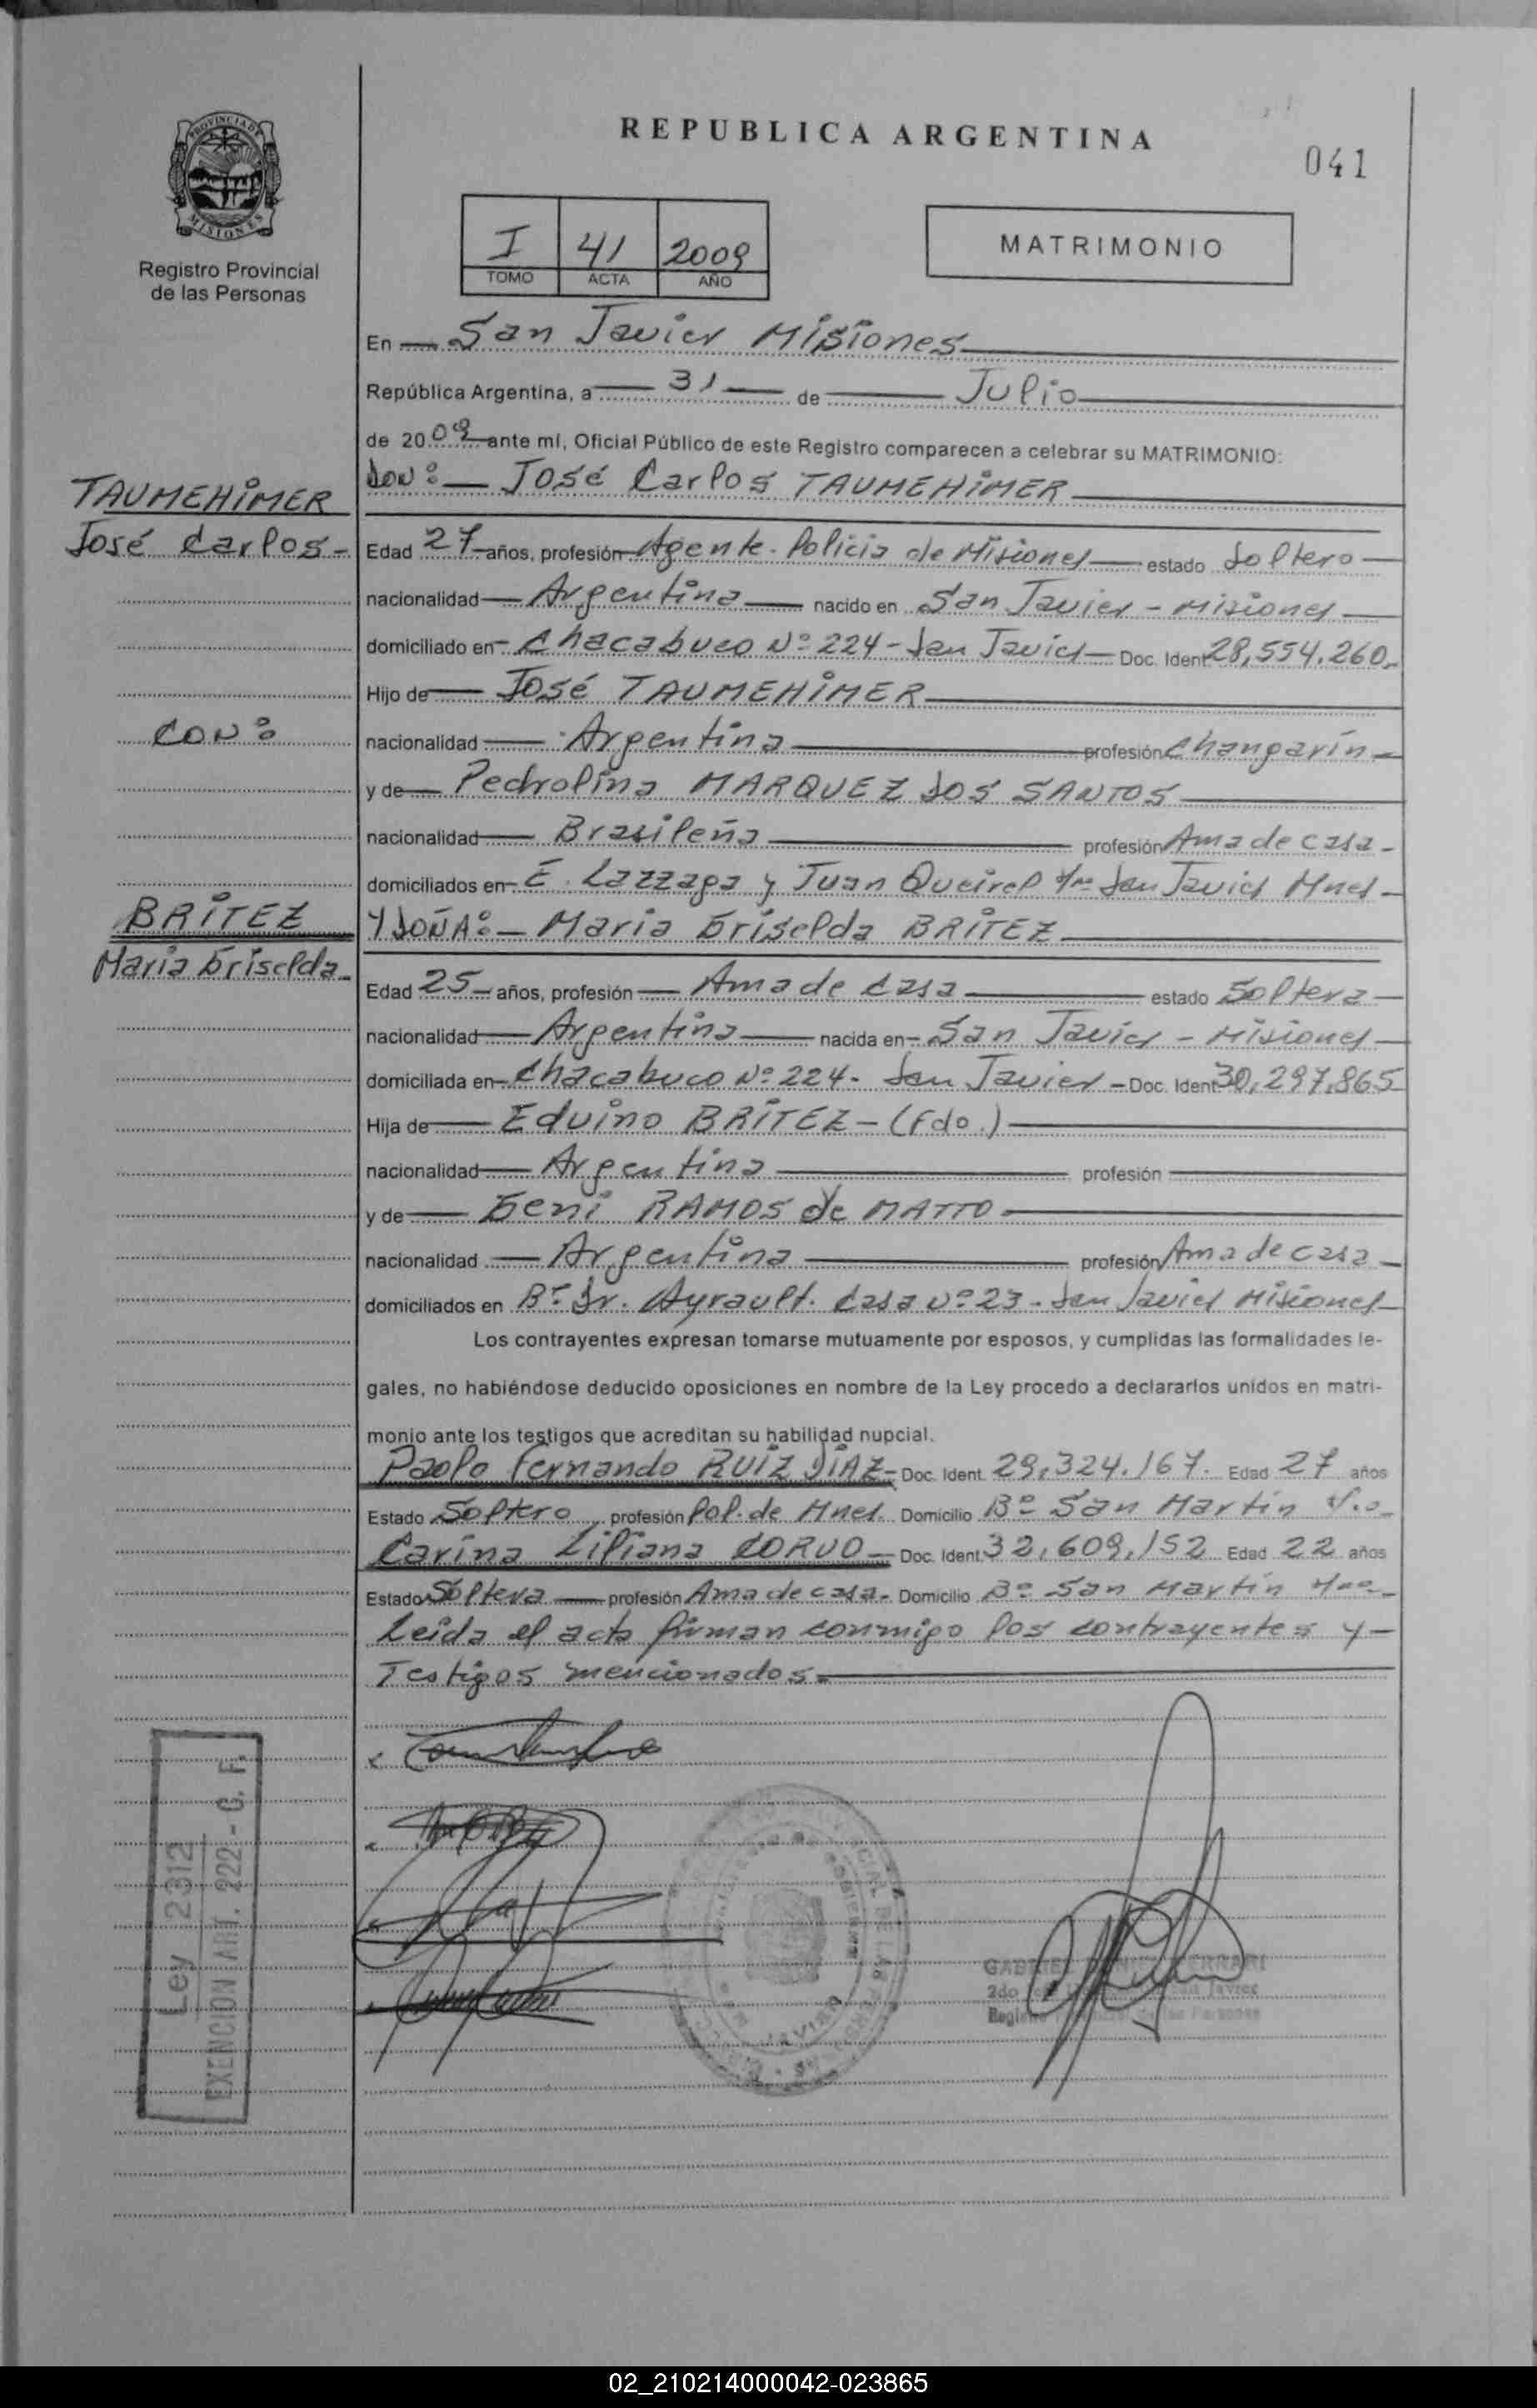 REPUBLICA ARGENTINA
041
PROVINCIA DE
MISIONES
Registro Provincial
de las Personas
I 41 2009
TOMO ACTA AÑO
MATRIMONIO
En San Javier Misiones
República Argentina, a 31 de Julio
de 2009 ante mí, Oficial Público de este Registro comparecen a celebrar su MATRIMONIO:
TAUMEHIMER
José Carlos-
DON:- José Carlos TAUMEHIMER
Edad 27 años, profesión Agente. Policia de Misiones estado Soltero
nacionalidad Argentina nacido en San Javier - Misiones
domiciliado en Chacabuco Nº 224 - San Javier Doc. Ident 28,554.260
Hijo de José TAUMEHIMER
CON:
nacionalidad Argentina profesión Changarín
y de Pedrolina MARQUEZ DOS SANTOS
nacionalidad Brasileña profesión Ama de casa
domiciliados en E. Lazzaga y Juan Queirel San Javier Mnes
BRÍTEZ
Maria Griselda
Y DOÑA:- Maria Griselda BRÍTEZ
Edad 25 años, profesión Ama de Casa estado Soltera
nacionalidad Argentina nacida en San Javier - Misiones
domiciliada en Chacabuco Nº 224 - San Javier Doc. Ident 30,297,865
Hija de Eduino BRÍTEZ - (Fdo.)
nacionalidad Argentina profesión
y de Geni RAMOS de MATTO
nacionalidad Argentina profesión Ama de casa
domiciliados en Bº Dr. Ayrault. Casa Nº 23 - San Javier Misiones
Los contrayentes expresan tomarse mutuamente por esposos, y cumplidas las formalidades le-
gales, no habiéndose deducido oposiciones en nombre de la Ley procedo a declararlos unidos en matri-
monio ante los testigos que acreditan su habilidad nupcial.
Paolo Fernando RUIZ DIAZ Doc. Ident. 29,324.167. Edad 27 años
Estado Soltero profesión Pol. de Mnes. Domicilio Bº San Martín
Carina Liliana CORVO Doc. Ident. 32,609,152 Edad 22 años
Estado Soltera profesión Ama de casa. Domicilio Bº San Martín
Leída el acta firman conmigo los contrayentes y
Testigos mencionados
Ley 2312
EXENCION ART. 222 - C. F.
02_210214000042-023865